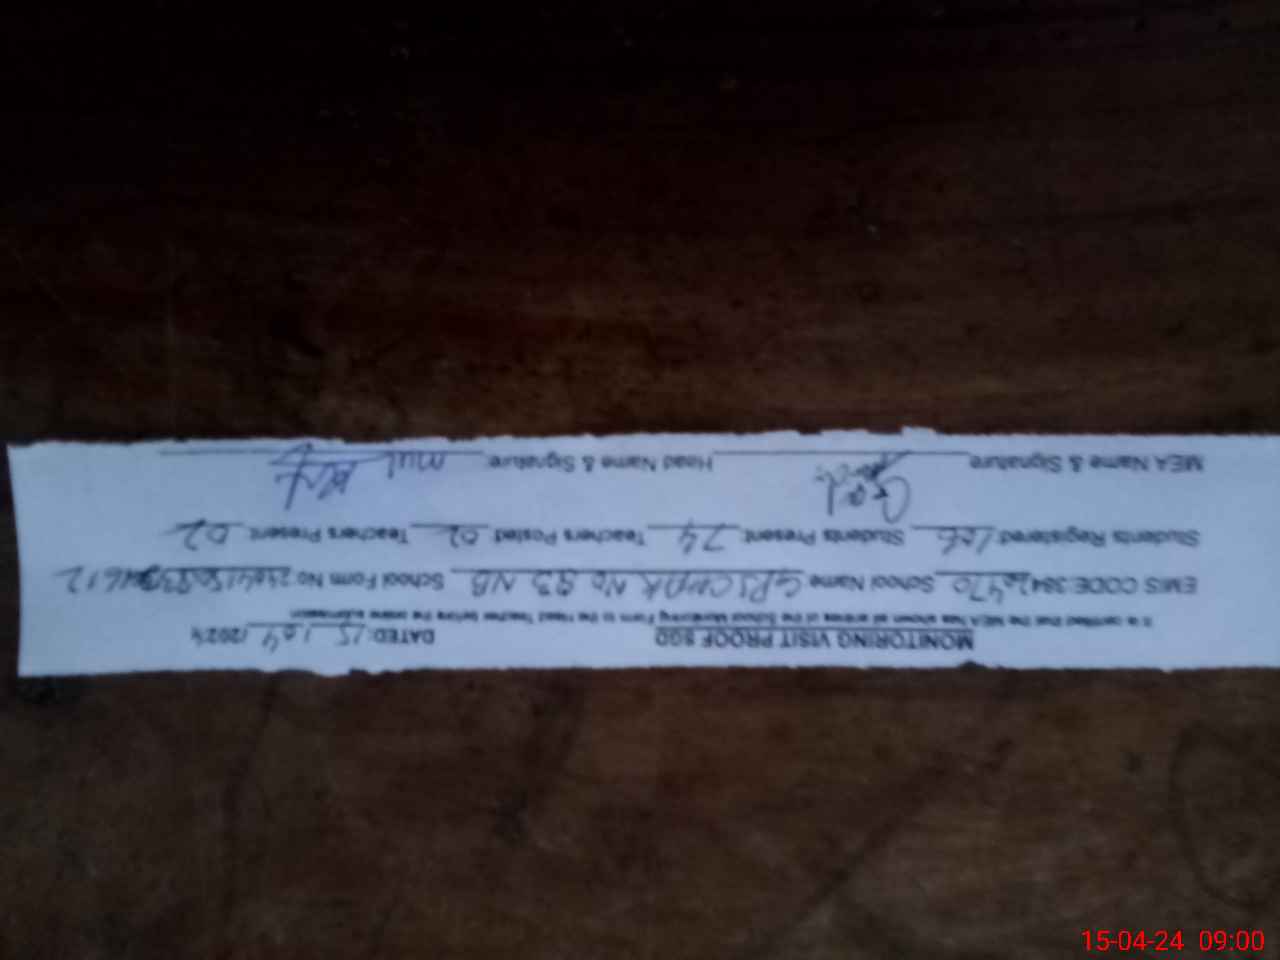 MONITORING VISIT PROOF SGD DATED: 15/04/2024
It is certified that the MEA has shown all entries of the School Monitoring Form to the Head Teacher before the online submission
EMIS CODE:38420470 School Name GPS CHAK No 93 NB School Form No
Students Registered: 106 Students Present: 74 Teachers Posted: 02 Teachers Present: 02
MEA Name & Signature Head Name & Signature:
15-04-24 09:00